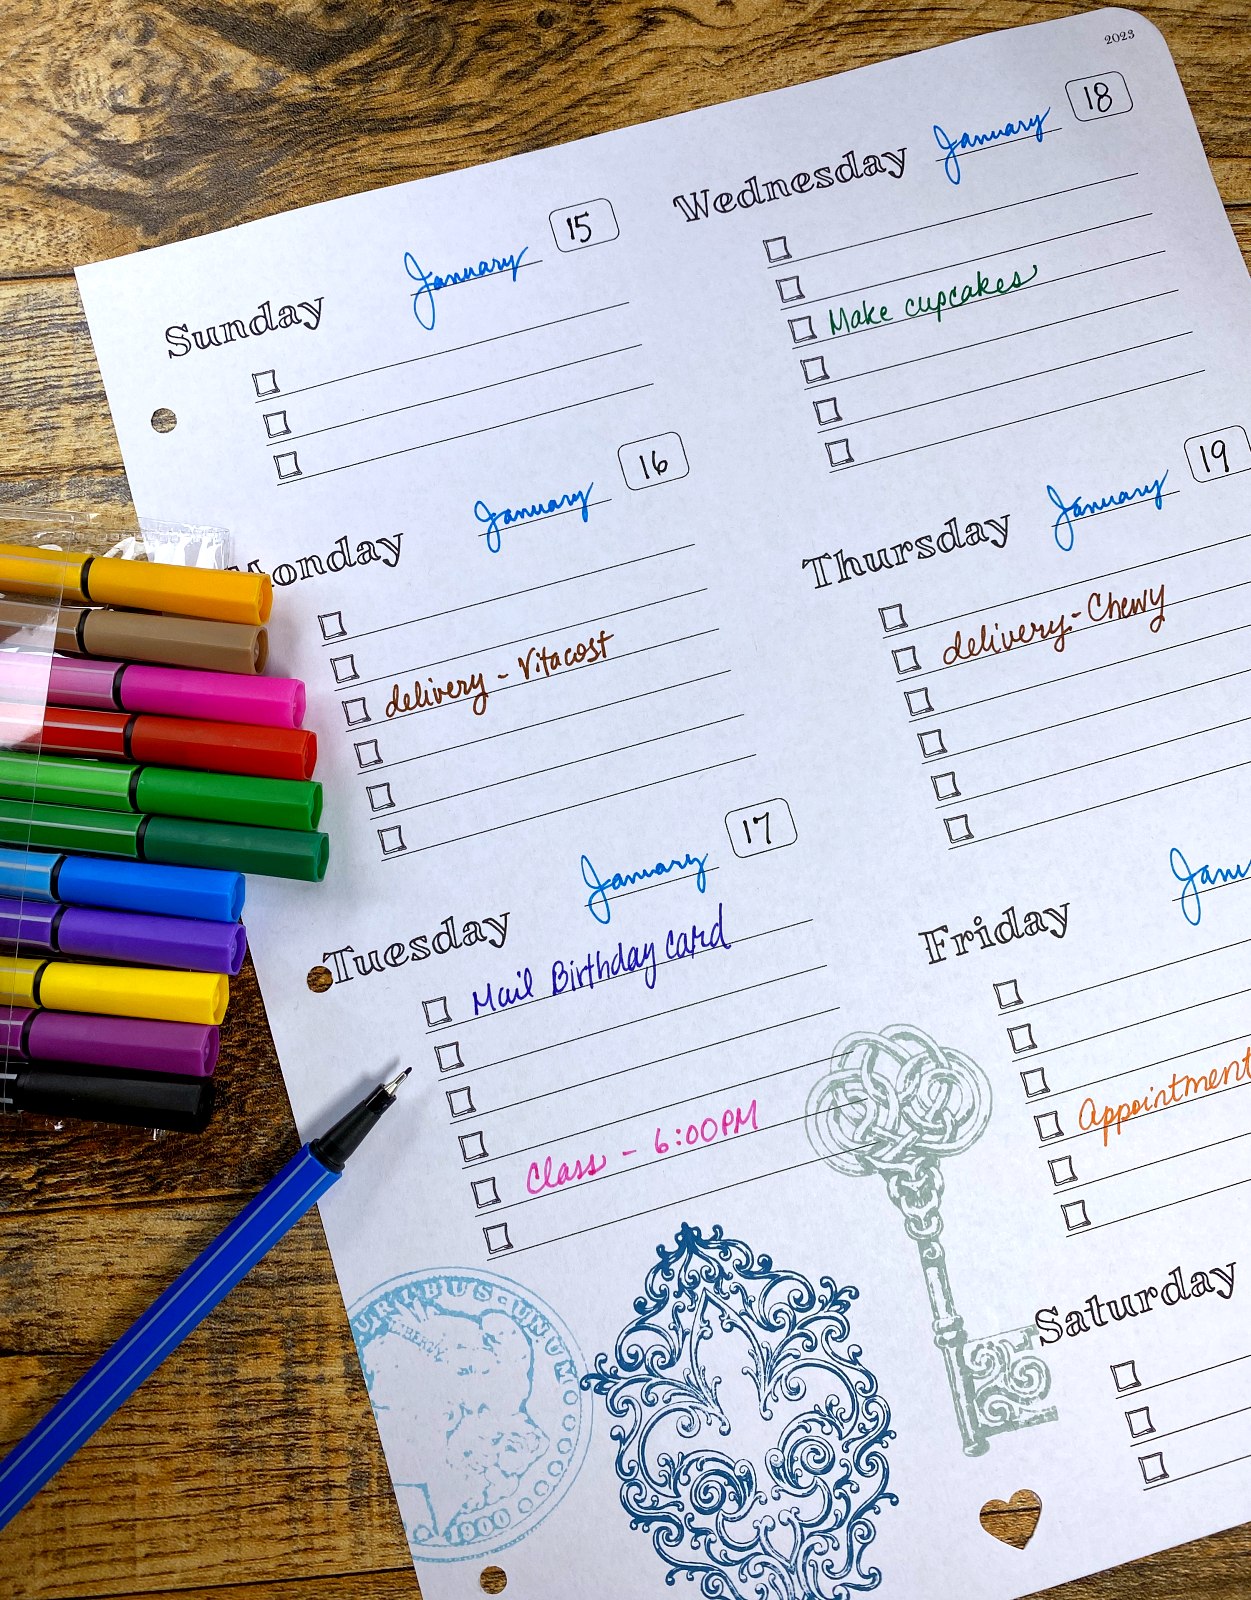 2023
Sunday January 15
Monday January 16
delivery - Vitacost
Tuesday January 17
Mail Birthday card
Class - 6:00PM
Wednesday January 18
Make cupcakes
Thursday January 19
delivery - Chewy
Friday
Appointment
Saturday
URIBUS·UNUM
LIBERTY
1900